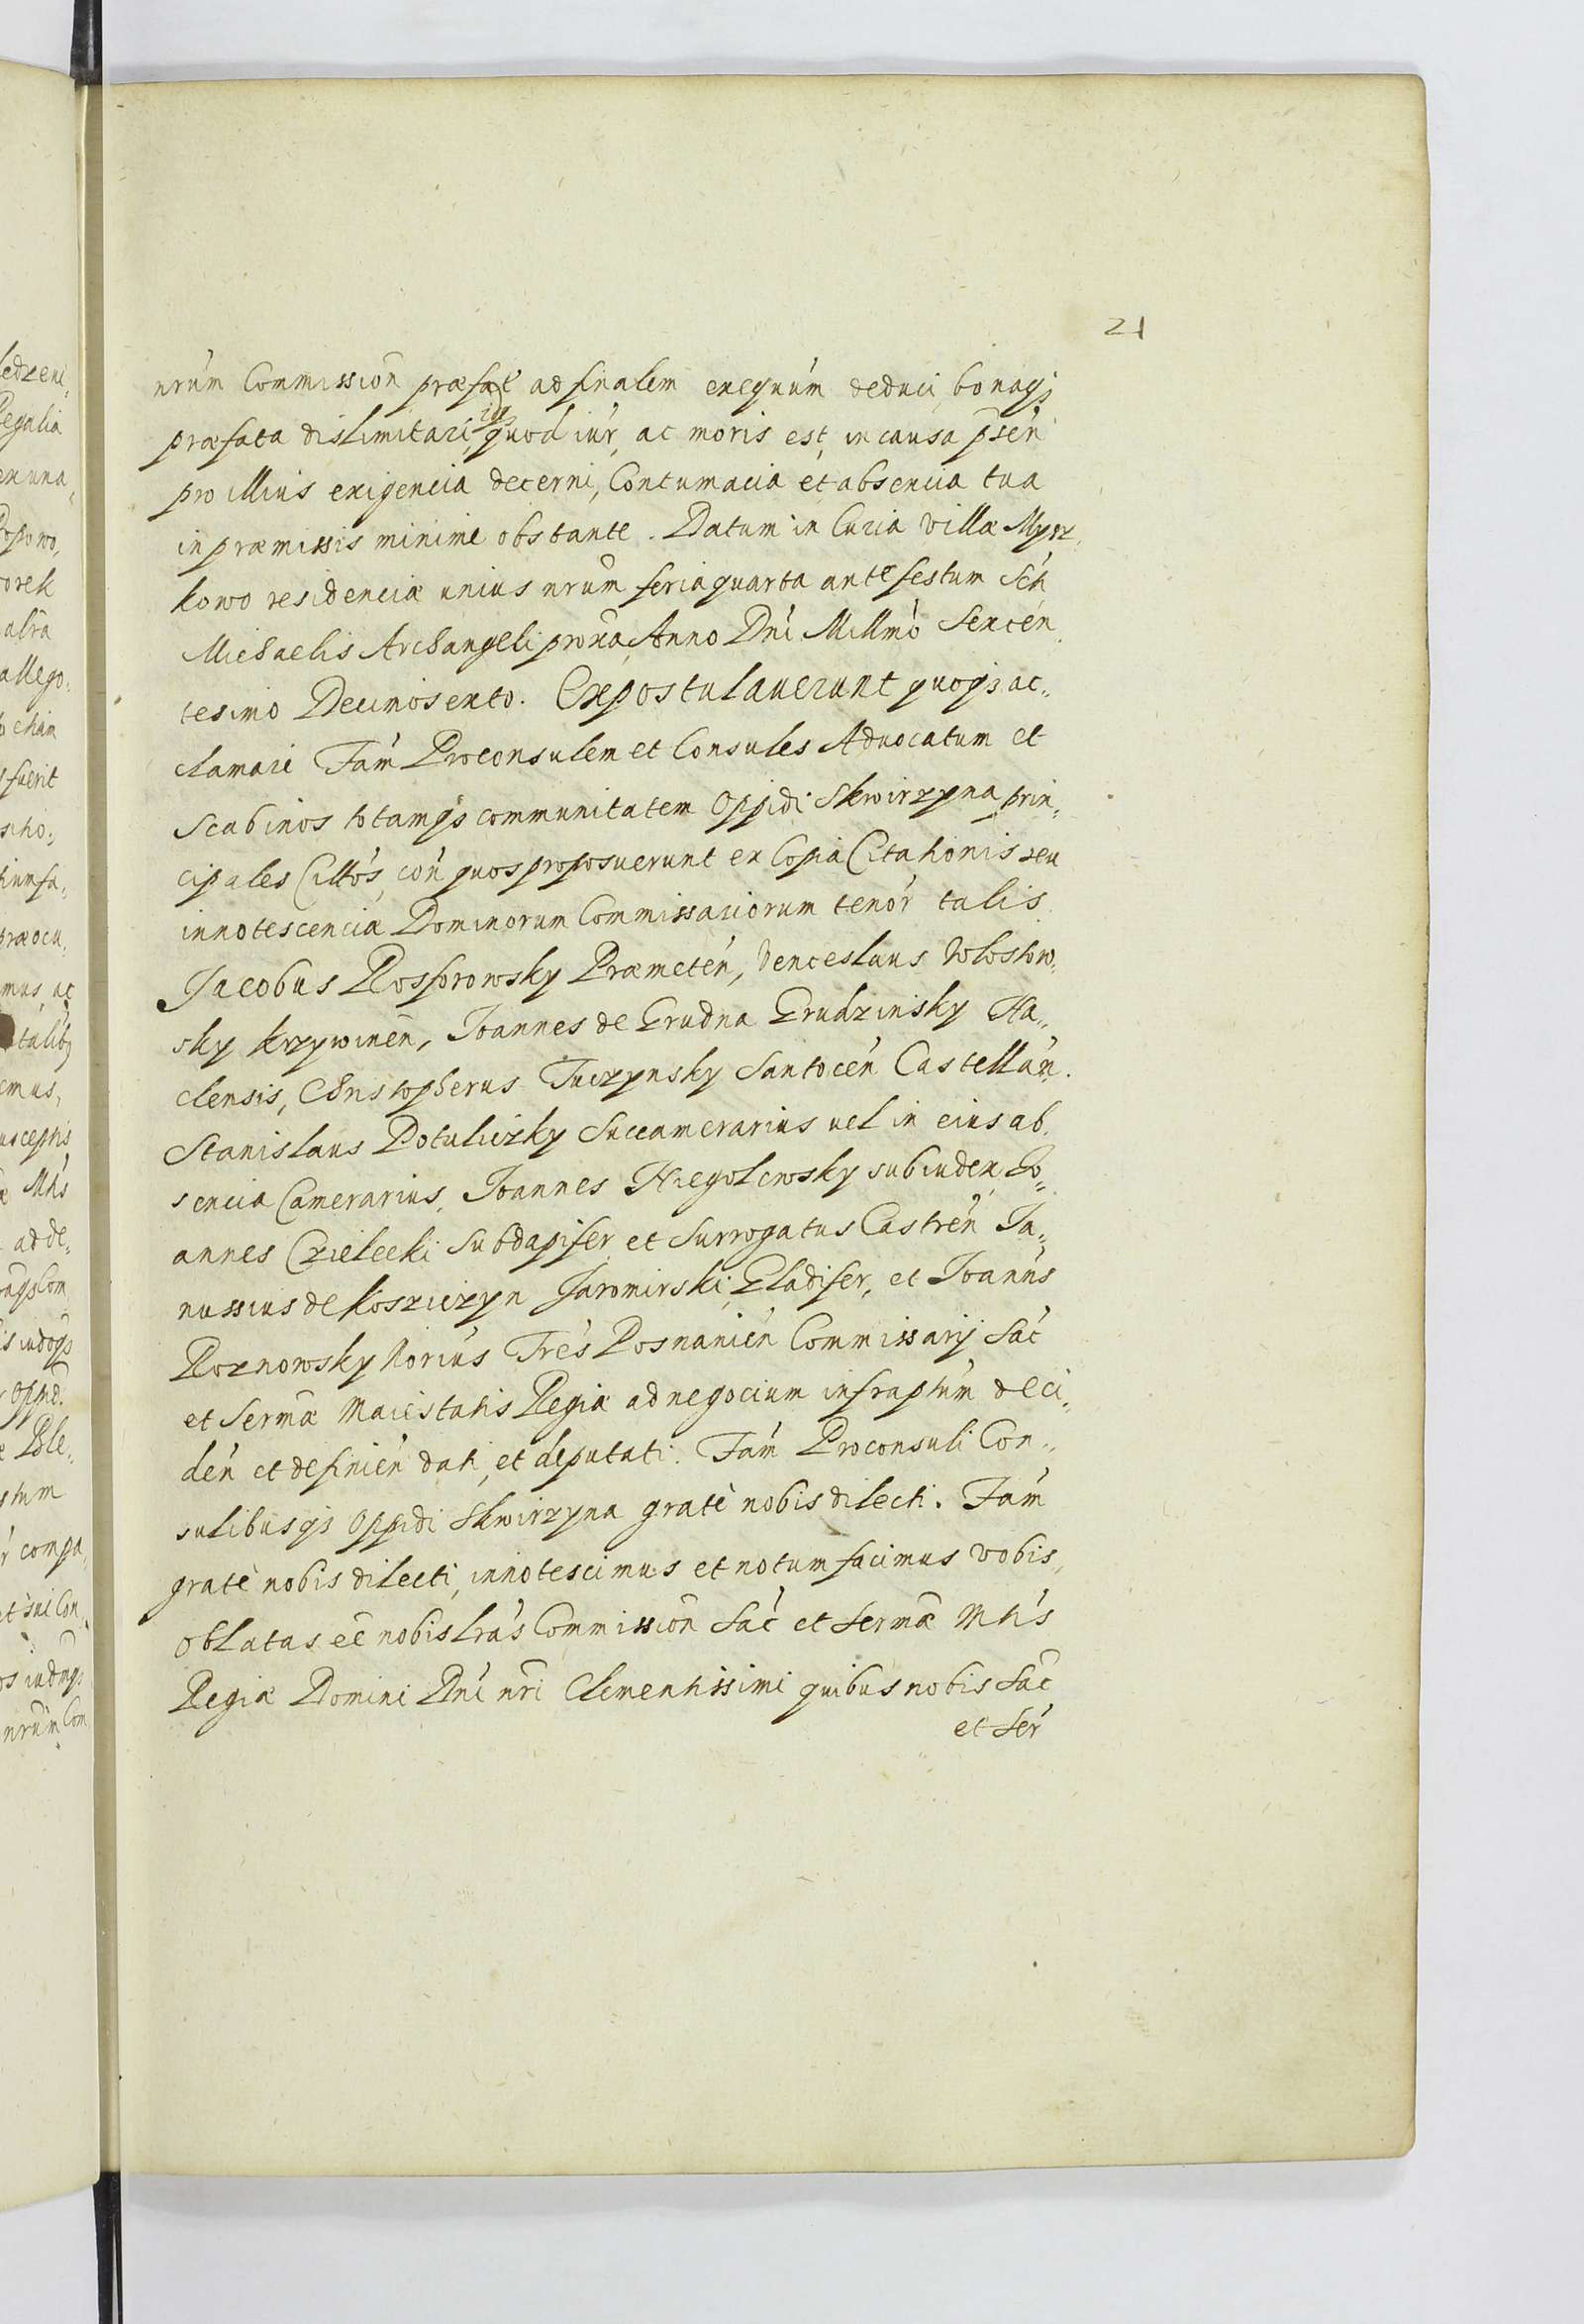 21
nrúm Commission̄ præfat̄ ad finalem exequúm deduci, bonaq3
præfata dislimitari, idq3 quod iúr, ac moris est, in causa p̄sén
pro illius exigencia decerni, Contumacia et absencia tua
in præmissis minime obstante. Datum in Curia villæ Mysz„
kowo residenciæ unius nrúm feria quarta ante festum Sćti
Michaelis Archangeli proxa, Anno Dńi Millmó Sexcén„
tesimo Decimosexto. Expostulauerunt quoq3 ac„
clamari Fám Proconsulem et Consules Aduocatum et
Scabinos totamq3 communitatem Oppidi Skwirzyna prin„
cipales Cittós, cón quos proposuerunt ex Copia Citationis seu
innotescenciæ Dominorum Commissariorum tenór talis.
Jacobus Rosprowsky Præmetén, Venceslaus Wlostow„
sky Krzywinén, Joannes de Grudna Grudzinsky Na„
clensis, Christopherus Tuczynsky Santocén Castellán.
Stanislaus Potuliczky Succamerarius uel in eius ab„
sencia Camerarius, Joannes Niegolewsky subiudex, Jo„
annes Czielecki Subdapifer et Surrogatus Castrén, Ja„
nussius de Koszuczyn Jaromirski, Gladifer, et Joannés
Roznowsky Norius Trés Posnanién Commissarij Sác
et Sermæ Maiestatis Regiæ ad negocium infraptúm deci„
dén et definién dati, et deputati. Fám Proconsuli Con„
sulibusq3 Oppidi Skwirzyna gratè nobis dilecti. Fám
gratè nobis dilecti, innotescimus et notum facimus vobis,
Oblatas eē nobis lrás Commission̄ Sác et Sermæ Mtís
Regiæ Domini Dńi nrí Clementissimi quibus nobis Sác
et Sér